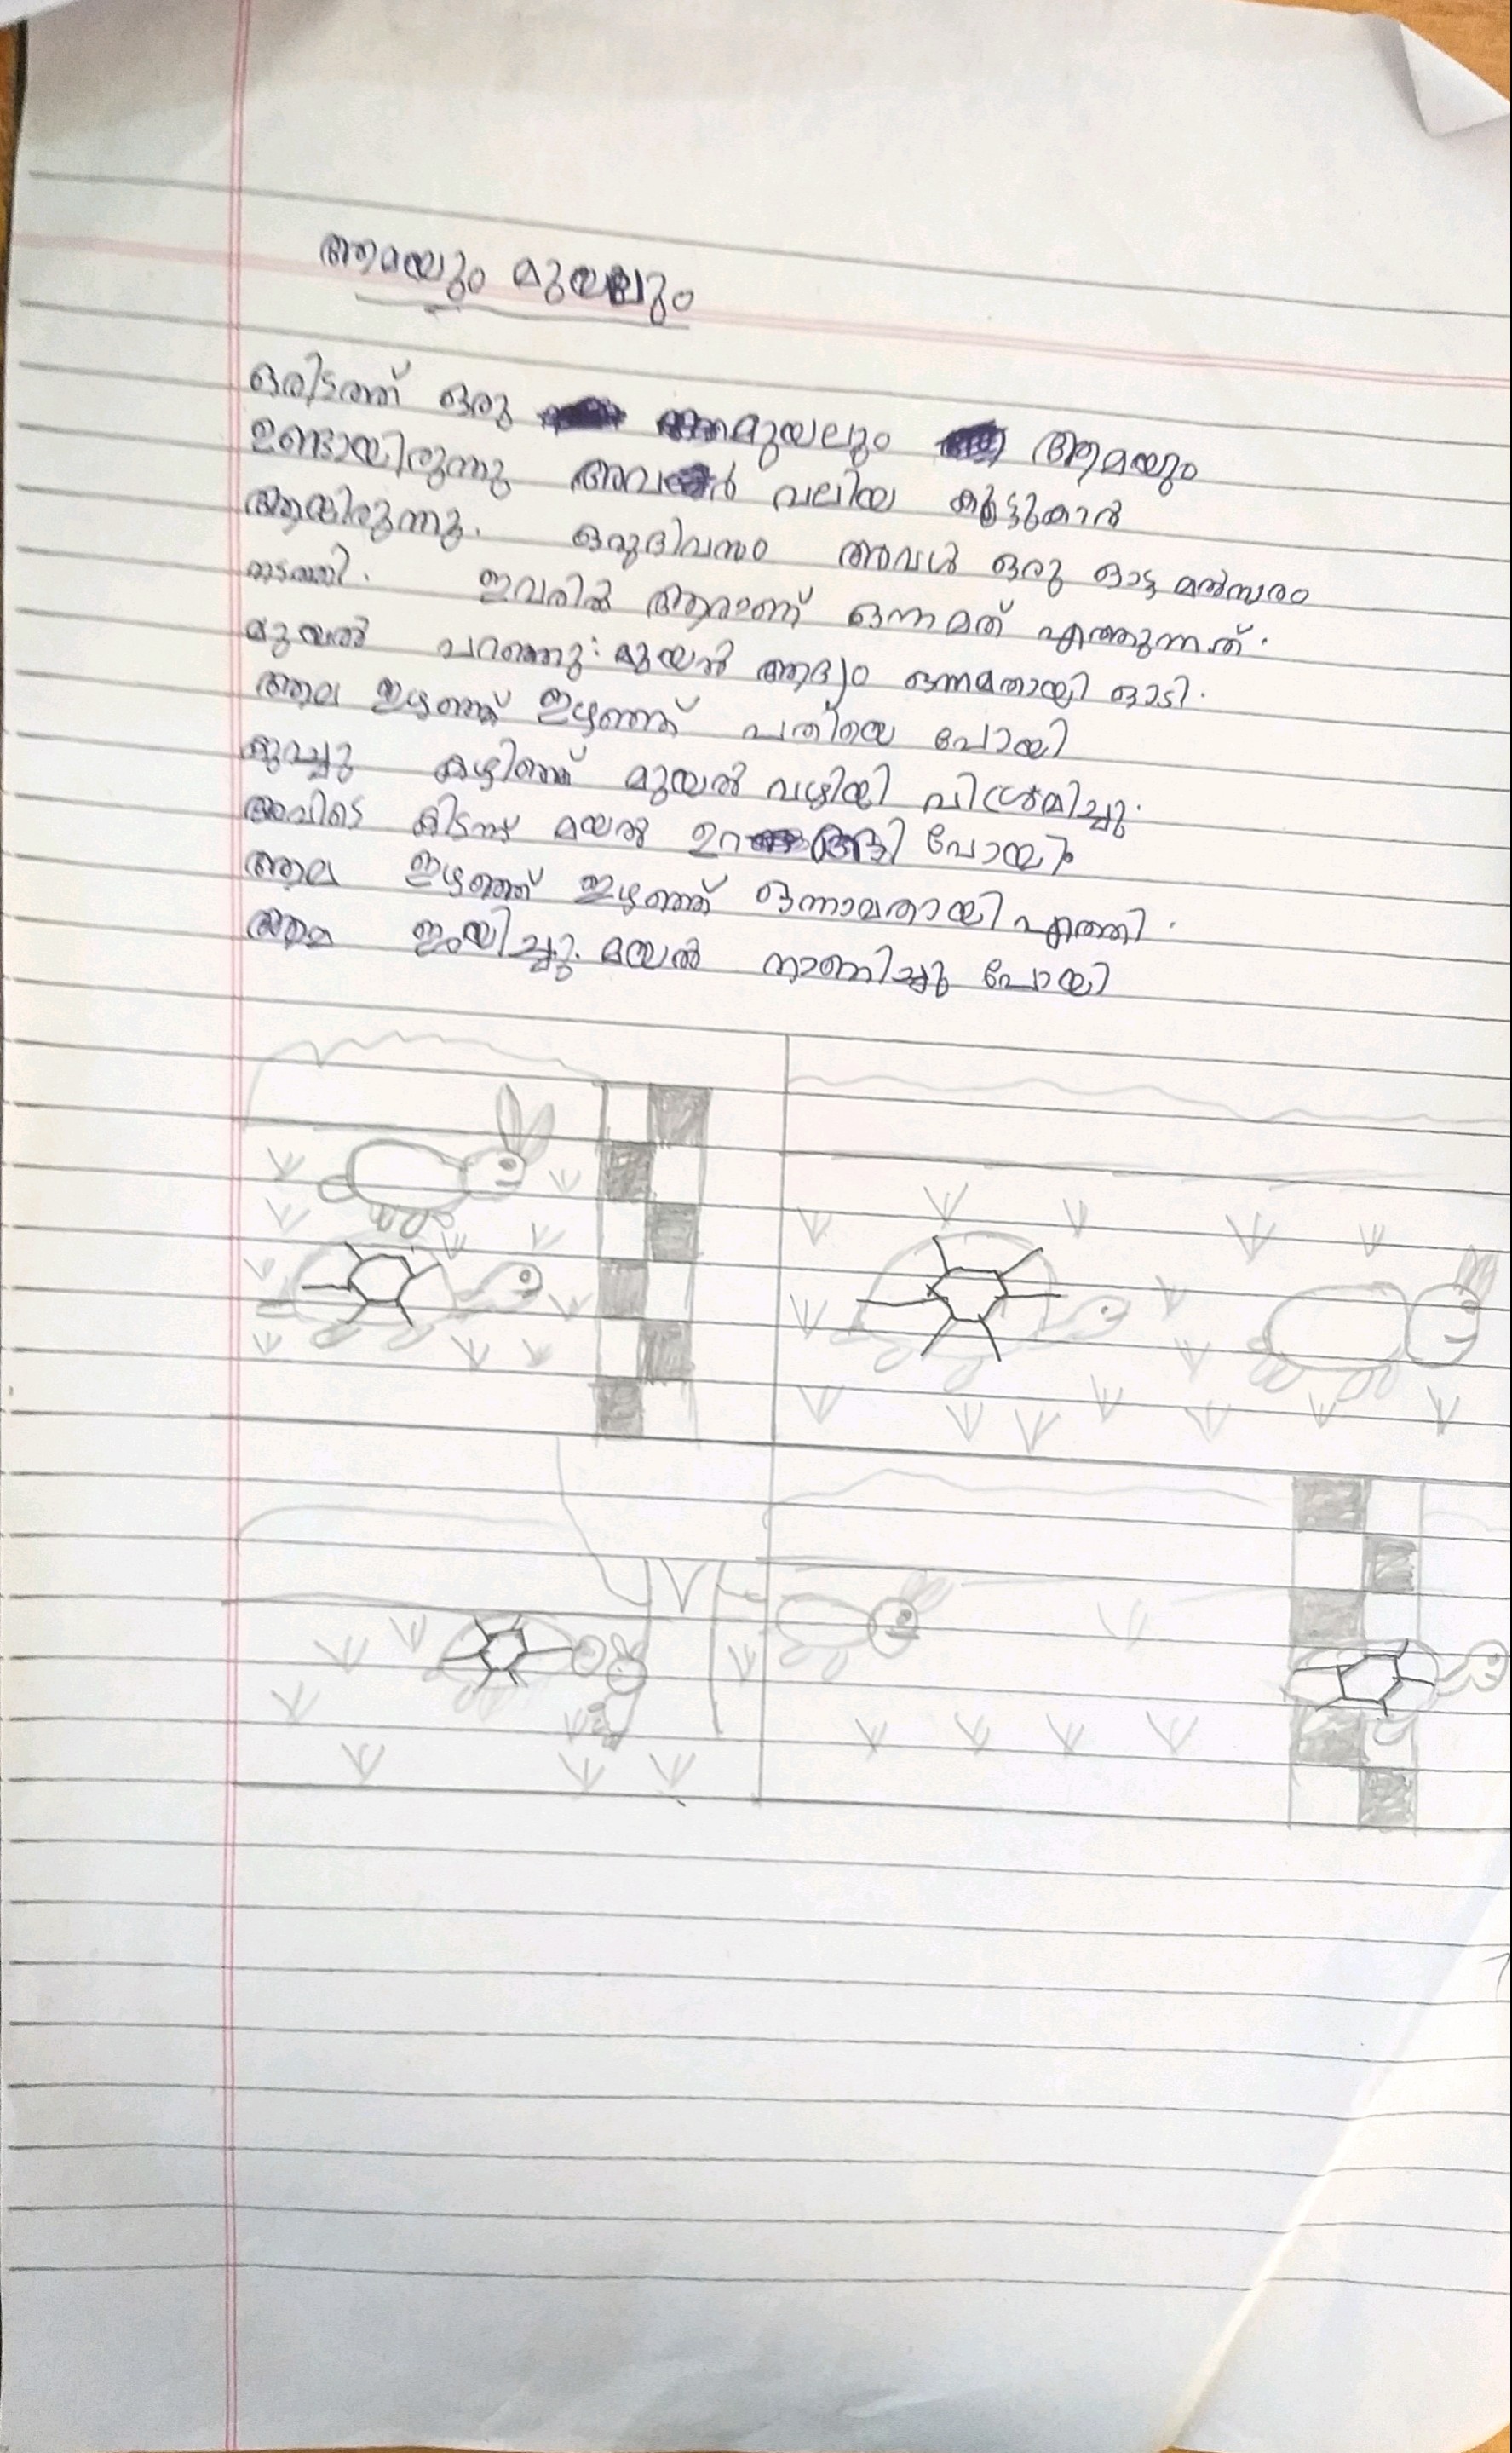 ആമയും മുയലും
ഒരിടത്ത് ഒരു മുയലും ആമയും
ഉണ്ടായിരുന്നു അവർ വലിയ കൂട്ടുകാർ
ആയിരുന്നു. ഒരുദിവസം അവൾ ഒരു ഓട്ട മൽസരം
നടത്തി. ഇവരിൽ ആരാണ് ഒന്നമത് എത്തുന്നത്.
മുയൽ പറഞ്ഞു: മുയൽ ആദ്യം ഒന്നമതായി ഓടി.
ആമ ഇഴഞ്ഞ് ഇഴഞ്ഞ് പതിയെ പോയി
കുറച്ചു കഴിഞ്ഞ് മുയൽ വഴിയി വിശ്രമിച്ചു.
അവിടെ കിടന്ന് മയരു പോയി
ആമ ഇഴഞ്ഞ് ഇഴഞ്ഞ് ഒന്നാമതായി എത്തി.
ആമ മയൽ നാണിച്ചു പോയി